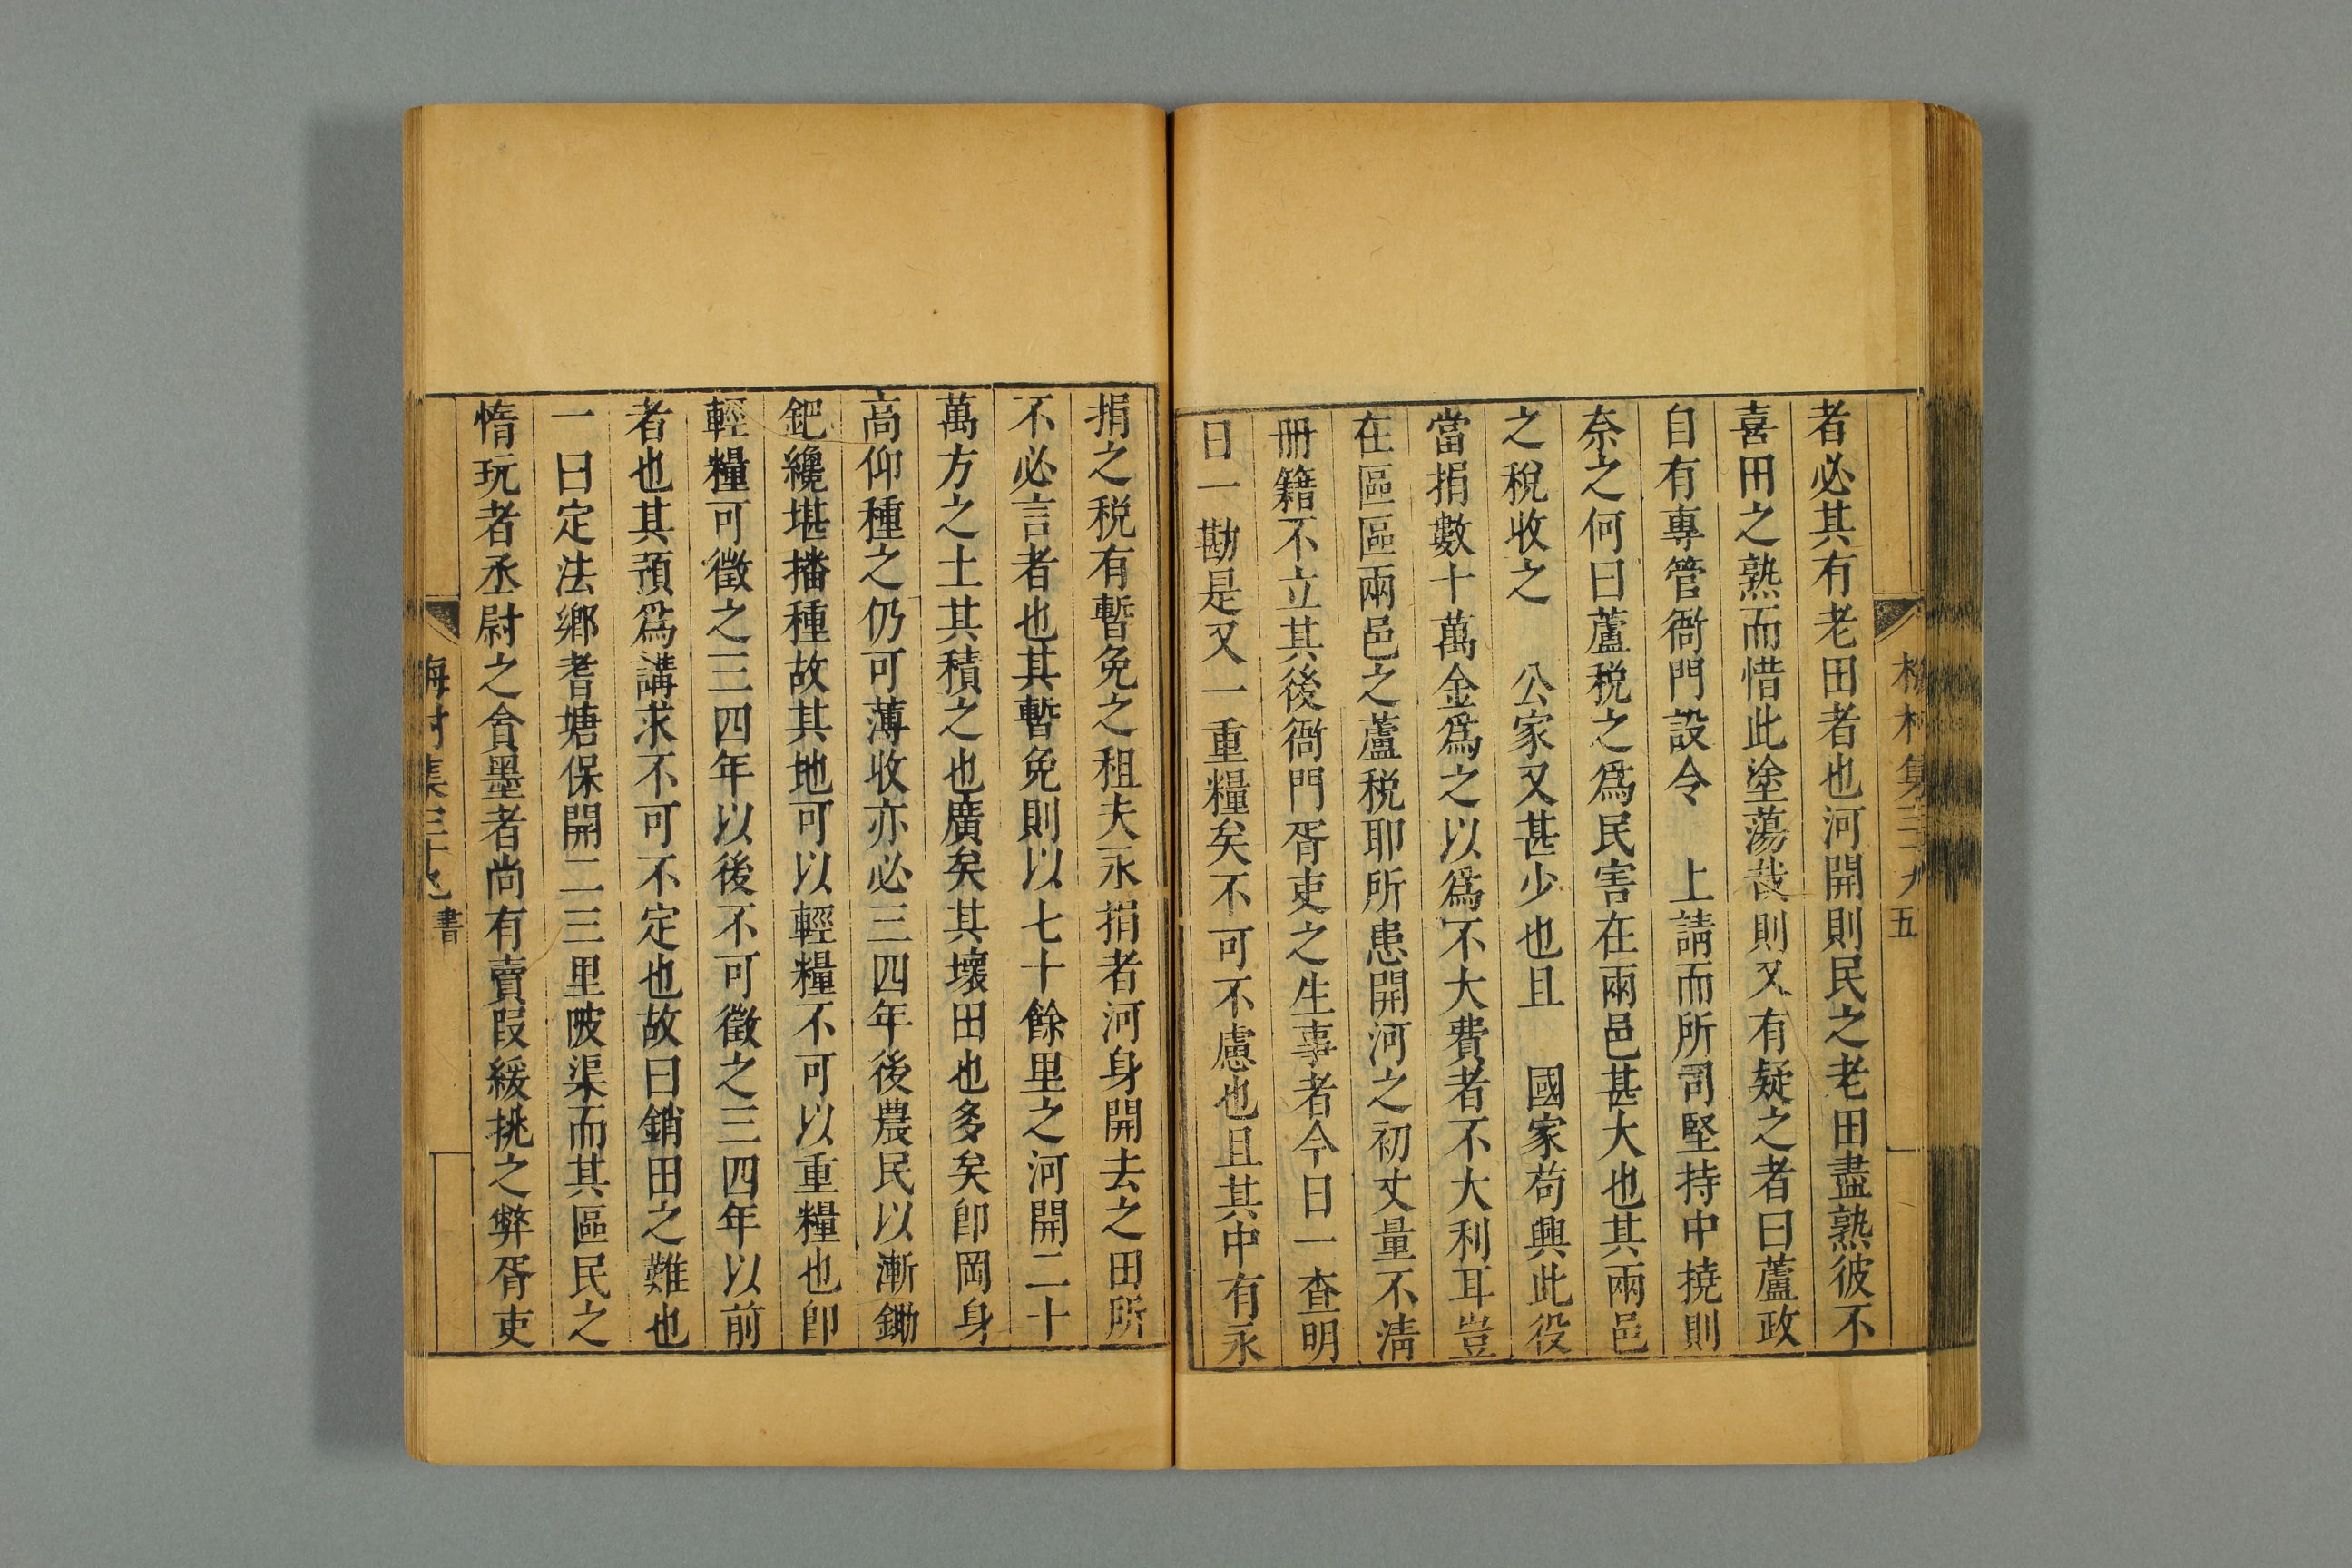 者必其有老田者也河開則民之老田盡熟彼不
喜田之熟而惜此塗蕩哉則又有疑之者曰蘆政
自有專管衙門設令　上請而所司堅持中撓則
奈之何曰蘆税之爲民害在兩邑甚大也其兩邑
之稅收之　公家又甚少也且　國家苟興此役
當捐數十萬金爲之以爲不大費者不大利耳豈
在區區兩邑之蘆税耶所患開河之初丈量不清
冊籍不立其後衙門胥吏之生事者今日一查明
日一勘是又一重糧矣不可不慮也且其中有永
捐之税有暫免之租夫永捐者河身開去之田所
不必言者也其暫免則以七十餘里之河開二十
萬方之土其積之也廣矣其壞田也多矣卽岡身
高仰種之仍可薄收亦必三四年後農民以漸鋤
鈀纔堪播種故其地可以輕糧不可以重糧也卽
輕糧可徵之三四年以後不可徵之三四年以前
者也其預爲講求不可不定也故曰銷田之難也
一曰定法鄉耆塘保開二三里陂渠而其區民之
惰玩者丞尉之貪墨者尚有賣叚緩挑之弊胥吏
梅村集三十九
書
五